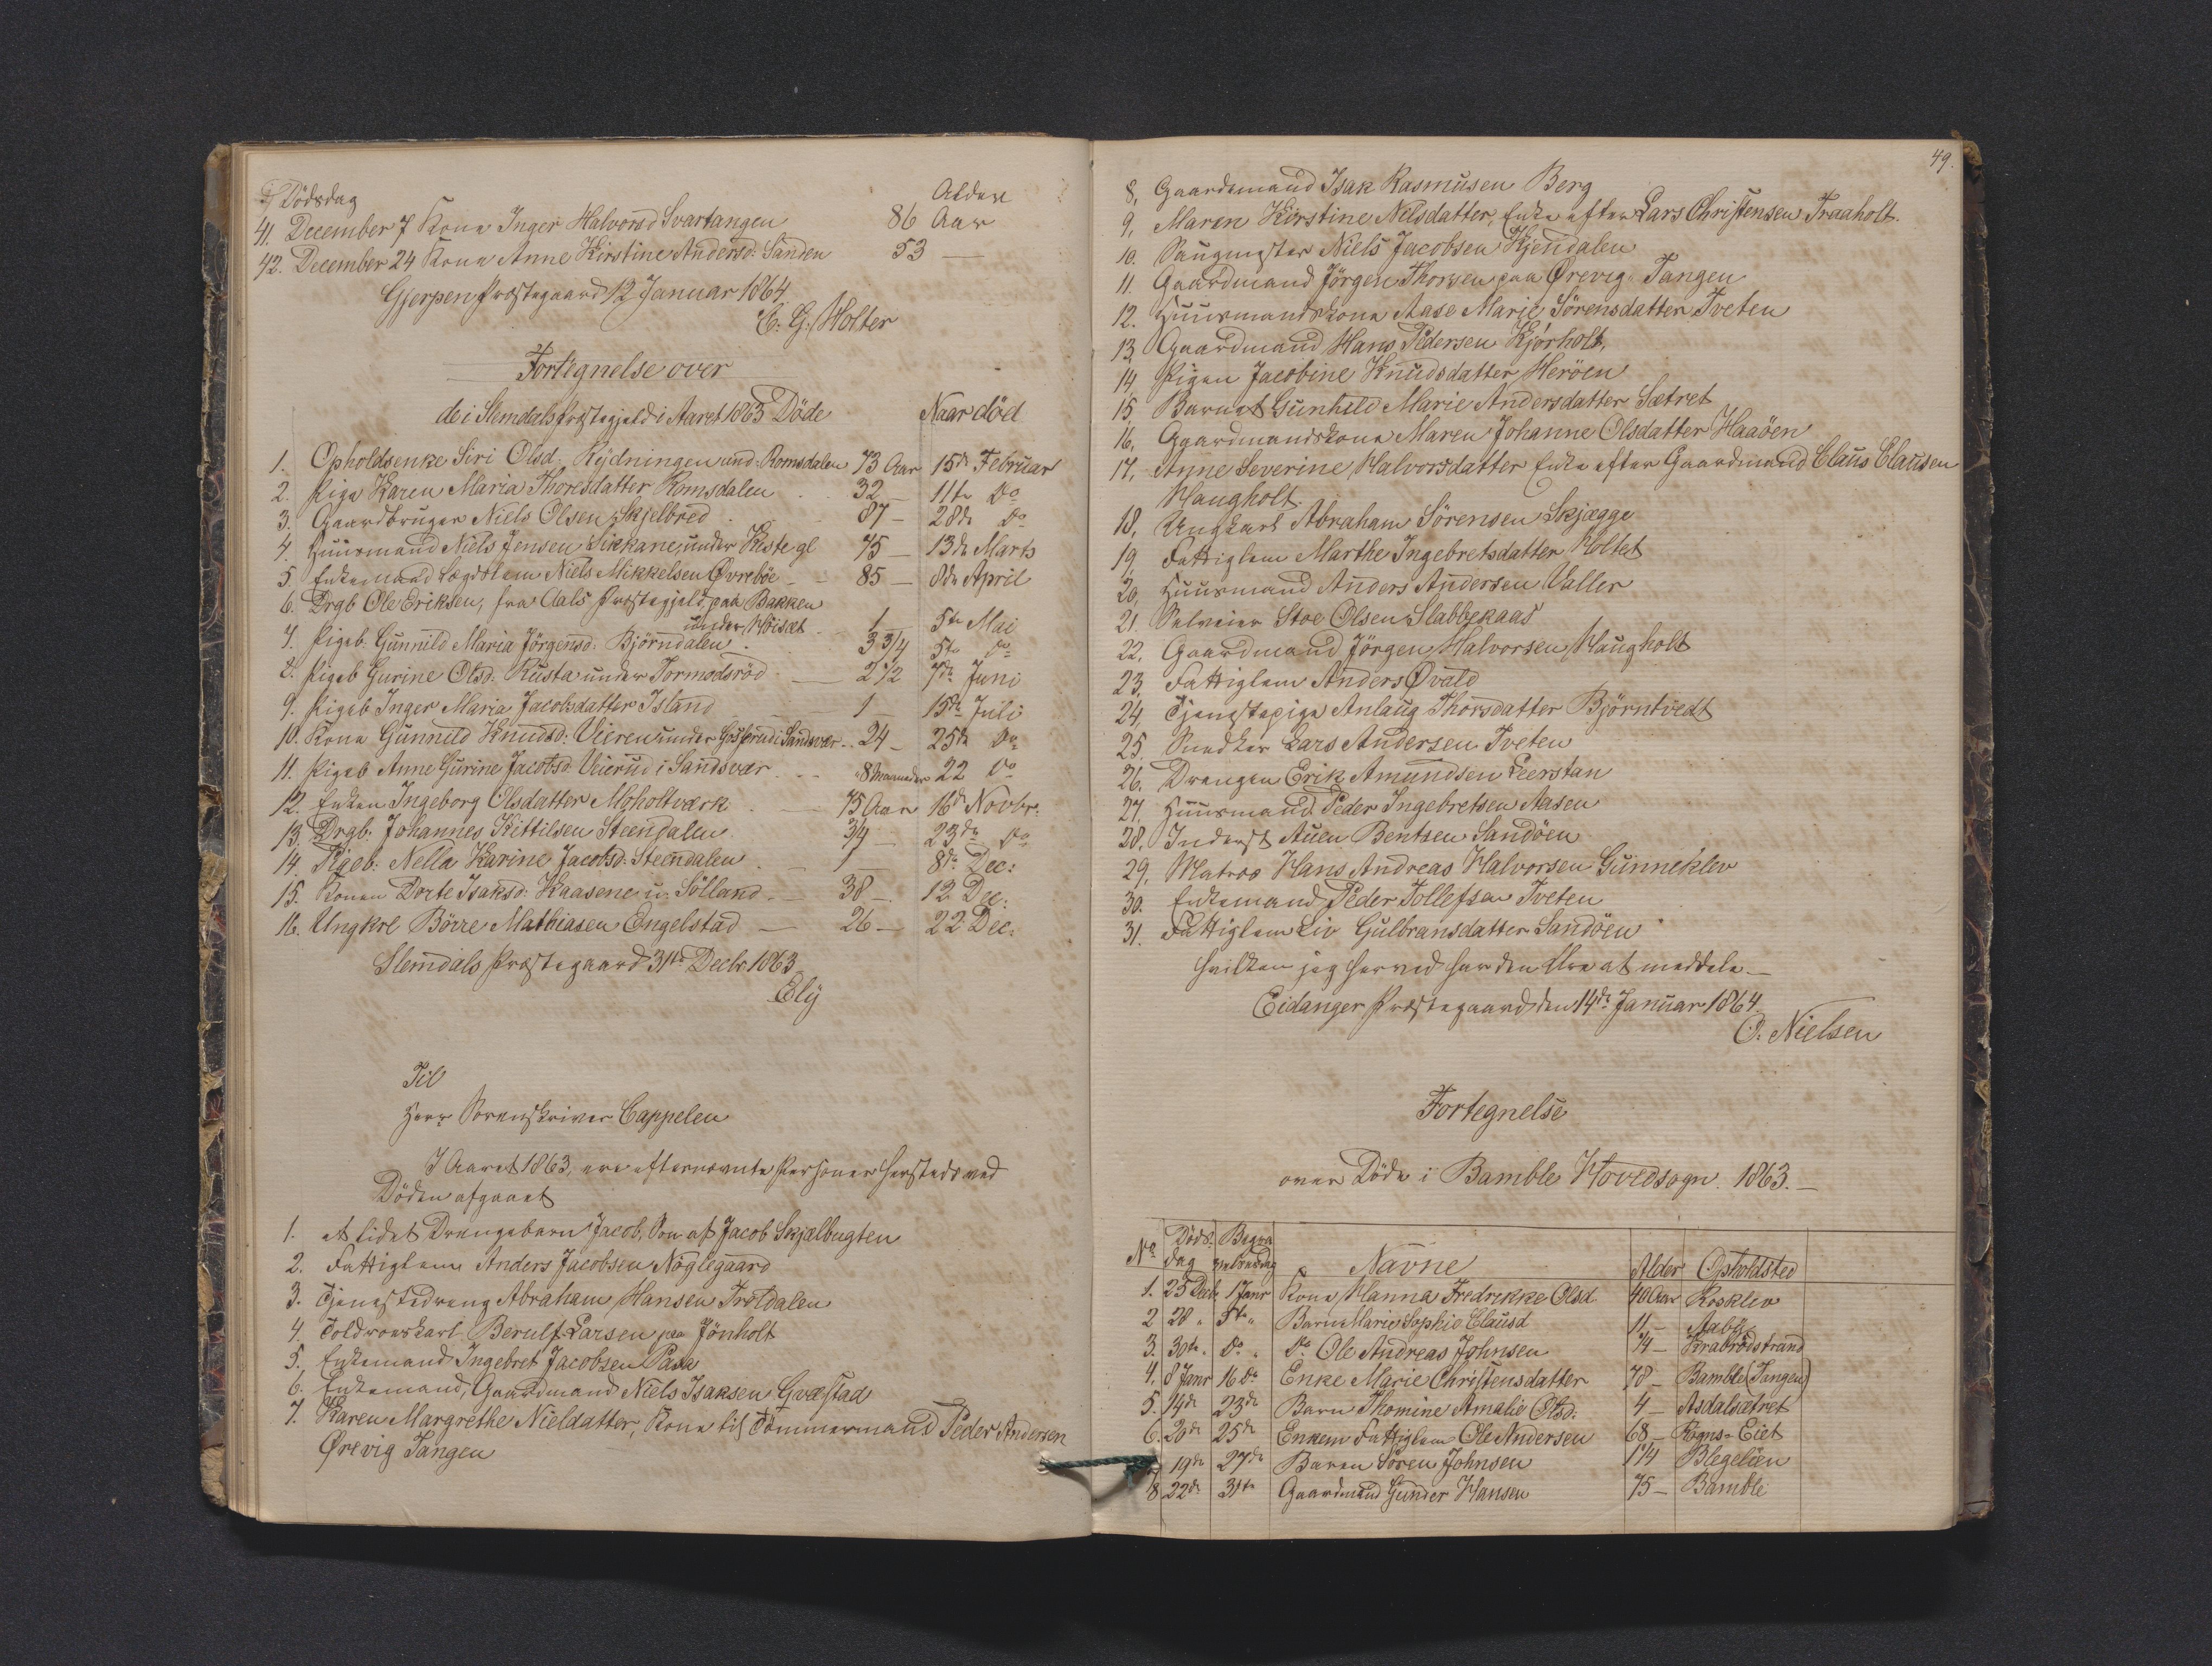 Dödsdag Alder
41. December 7 Kone Inger Halvorsd Svartangen 86 Aar
42. December 24 Kone Anne Kirstine Andersd: Sanden 53 —
Gjerpen Præstegaard 12 Januar 1864
C. G. Holter
Fortegnelse over
de i Slemdals Præstegjeld i Aaret 1863 Döde Naar död
1. Opholdsenke Siri Olsd. Rydningen und. Romsdalen 73 Aar 15de Februar
2. Pige Karen Maria Thoresdatter Romsdalen 32 — 11te Do
3. Gaardbruger Niels Olsen Skjelbred 87 — 28de Do
4. Huusmand Niels Jensen Sikkane, under Kiste gl 75 — 13de Marts
5. Enkemand Lægdslem Niels Mikkelsen Øvreböe 85 — 8de April
6. Drgb Ole Eriksen, fra Aals Præstegjeld, paa Bakken
under Höiset 1 — 5te Mai
7. Pigeb. Gunnild Maria Jörgensd: Björndalen 3 3/4 5te Do
8. Pigeb Gurine Olsd. Rusta under Tormodsröd 2 1/2 7de Juni
9. Pigeb Inger Maria Jacobsdatter Island 1 — 15de Juli
10. Kone Gunnild Knudsd: Vieren under Gosserud i Sandsvær 24 — 25de Do
11. Pigeb Anne Gurine Jacobsd Veierud i Sandsvær 8 Maaneder 22 Do
12. Enken Ingeborg Olsdatter Moholtværk 75 Aar 16de Novbr:
13. Drgb: Johannes Kittilsen Steendalen 3/4 — 23de Do
14. Pigeb: Nella Karine Jacobsd: Steendalen 1 — 8de Dec:
15. Konen Dorte Isaksd: Kaasene u. Sölland 38 — 12 Dec:
16. Ungkrl Börre Mathiasen Engelstad — 26 — 22 Dec:
Slemdals Præstegaard 31te Decbr 1863
Bly
Til
Herr Sorenskriver Cappelen
I Aaret 1863, ere efternævnte Personer herstedts ved
Döden afgaaet
1. et lidet Drengebarn Jacob, Sön af Jacob Skjælbugten
2. Fattiglem Anders Jacobsen Nöglegaard
3. Tjenestedreng Abraham Hansen Troldalen
4. Toldroerskarl Berulf Larsen paa Jönholt
5. Enkemand Ingebret Jacobsen Pasa
6. Enkemand, Gaardmand Niels Isaksen Gvæstad
7. Karen Margrethe Nieldatter, Kone til Tömmermand Peder Andersen
Örevig Tangen
49.
8. Gaardemand Isak Rasmusen Berg
9. Maren Kirstine Nilsdatter, Enke efter Lars Christensen Traaholt.
10. Saugmester Niels Jacobsen Kjendalen
11. Gaardmand Jörgen Thorsen paa Ørevig-Tangen
12. Huusmandskone Aase Marie Sörensdatter Tveten
13. Gaardmand Hans Pedersen Kjörholt,
14. Pigen Jacobine Knudsdatter Heröen
15. Barnet Gunhild Marie Andersdatter Sætret
16. Gaardmandskone Maren Johanne Olsdatter Haaöen
17. Anne Severine Halvorsdatter Enke efter Gaardmand Claus Clausen
Haugholt
18. Ungkarl Abraham Sörensen Skjægge
19. Fattiglem Marthe Ingebretsdatter Holtet
20. Huusmand Anders Andersen Valler
21. Selveier Stoe Olsen Slabbekaas
22. Gaardmand Jörgen Halvorsen Haugholt
23. Fattiglem Anders Øvald
24. Tjenestepige Anlaug Thorsdatter Björntvedt
25. Snedker Lars Andersen Tveten
26. Drengen Erik Amundsen Leerstan
27. Huusmand Peder Ingebretsen Aasen
28. Inderst Auen Bentsen Sandöen
29. Matros Hans Andreas Halvorsen Gunneklev
30. Enkemand Peder Tollefsen Tveten
31. Fattiglem Liv Gulbransdatter Sandöen
hvilken jeg herved har den Ære at meddele. —
Eidanger Præstegaard den 14de Januar 1864
O. Nielsen
Fortegnelse
over Döde i Bamble Hovedsogn. 1863. —
No Döds: dag Begravelsesdag Navne Alder Opholdsted
1. 25 Decb. 1 Janr Kone Hanna Fredrikke Olsd 40 Aar Rosklev
2 28 „ 5te „ Barn Marie Sophie Clausd 11 — Aaby
3. 30te „ Do „ Do Ole Andreas Johnsen 1/4 — Krabrödstrand
4. 8 Janr 16 Do Enke Marie Christensdatter 78 — Bamble (Tangen)
5. 14de 23de Barn Thomine Amalie Olsd: 4 — Asdalsætret
6. 20de 25de Enkem Fattiglem Ole Andersen 68 — Rogns-Eiet
19de 27de Barn Sören Johnsen 1 1/4 Blegelien
8 22de 31te Gaardmand Gunder Hansen 75 — Bamble